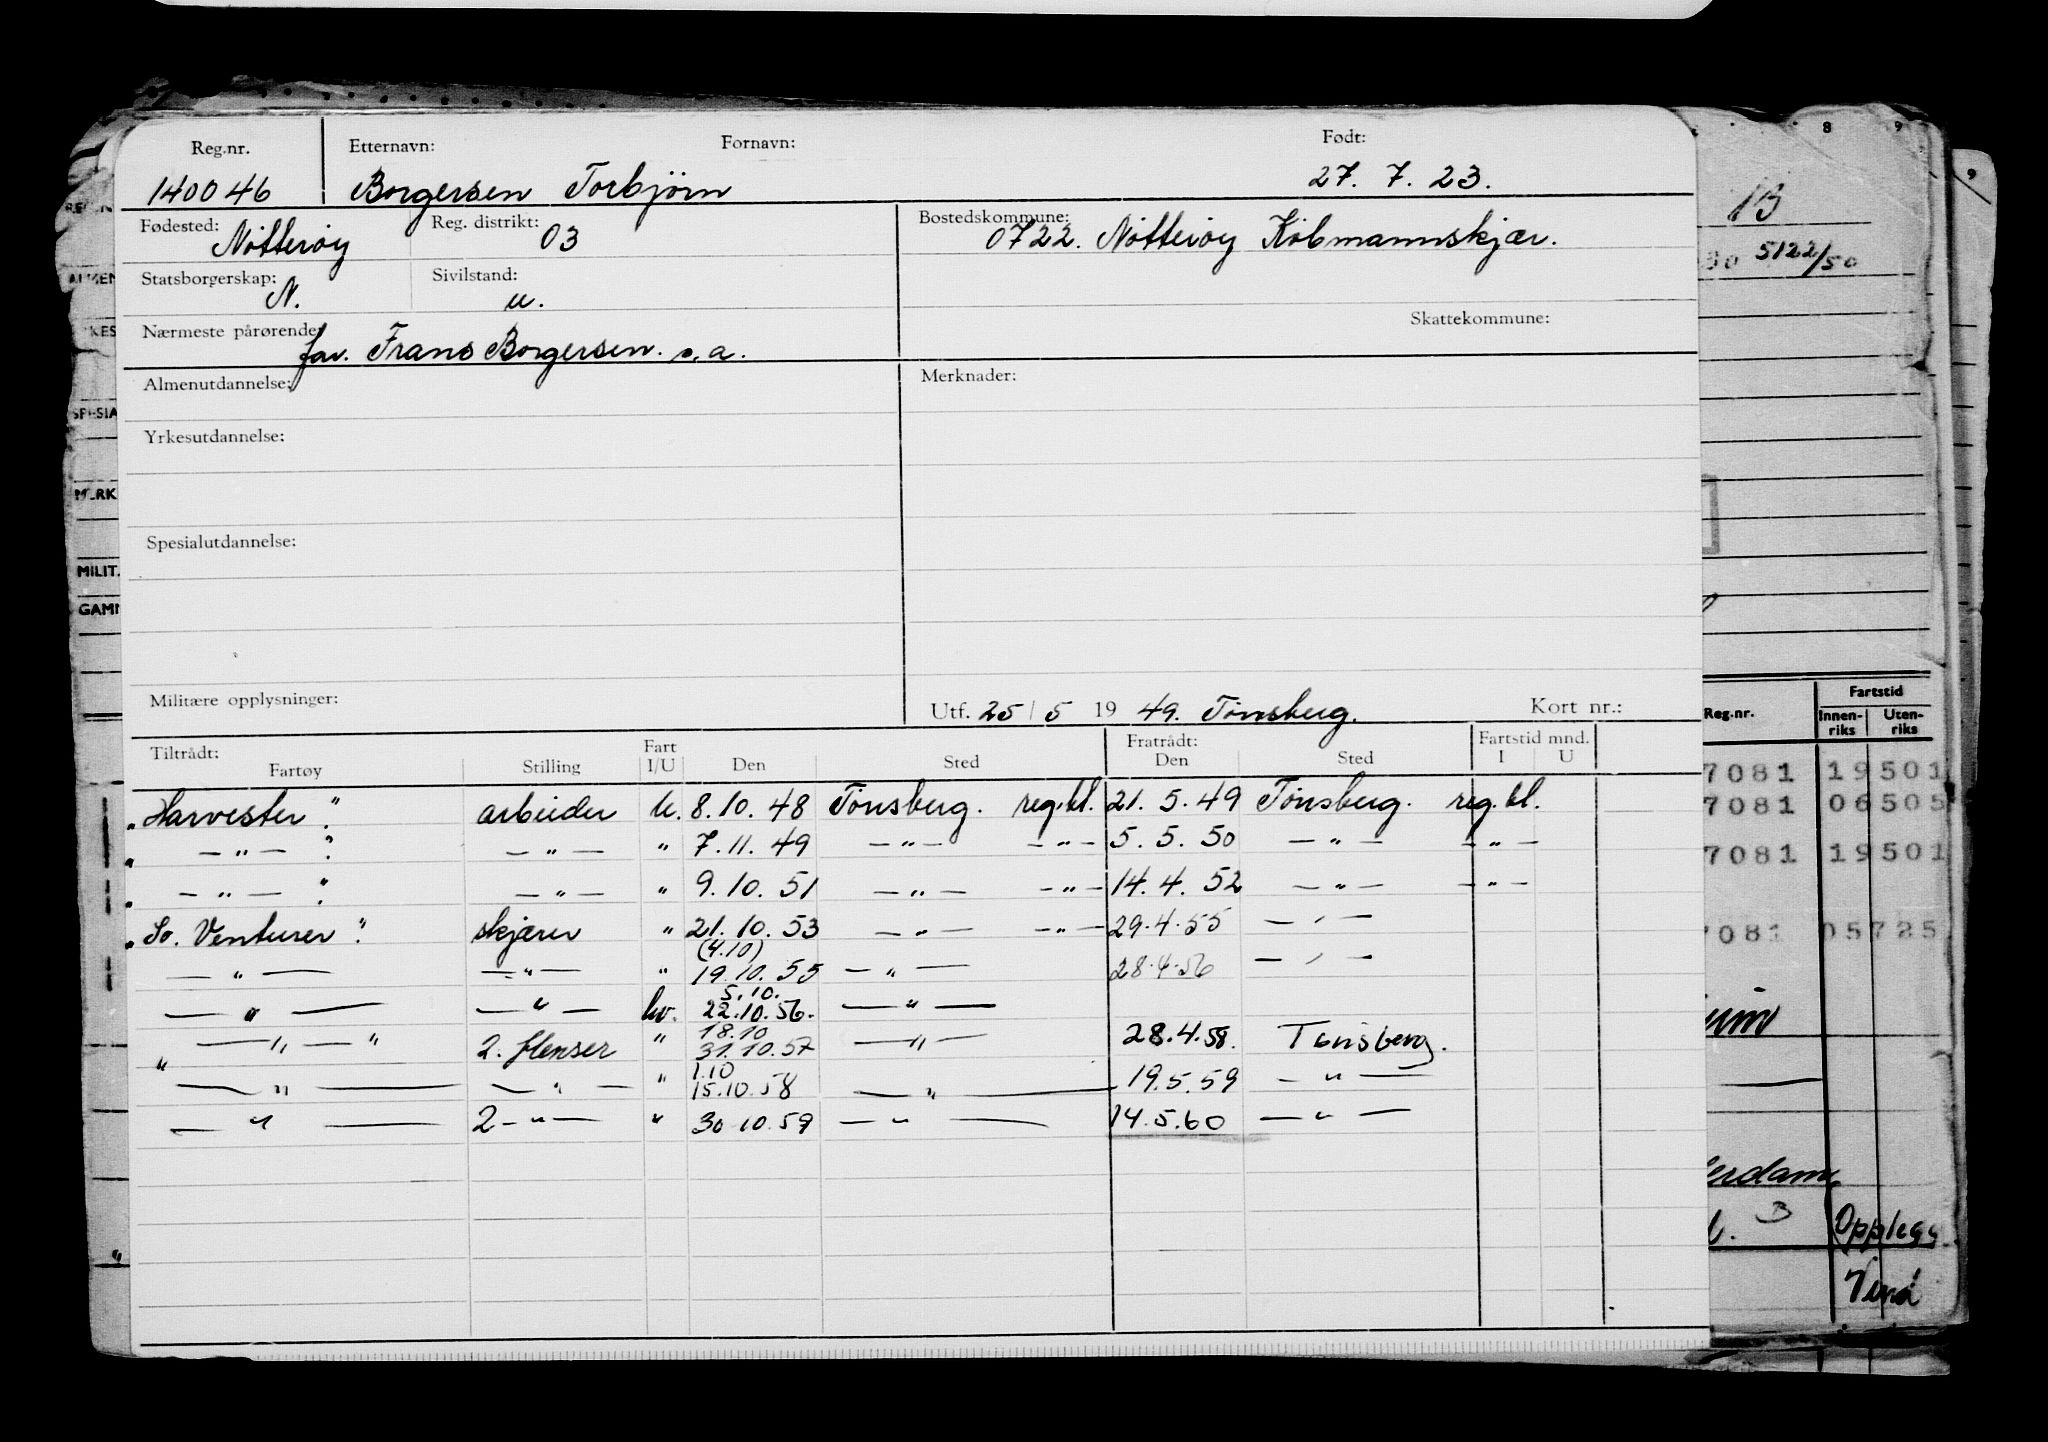 Reg.nr. Etternavn: Fornavn: Født:
140046 Borgersen Torbjörn 27. 7. 23.
Fødested: Nötteröy Reg. distrikt: 03 Bostedskommune: 0722. Nötteröy Köbmannskjær.
Statsborgerskap: N. Sivilstand: u.
Nærmeste pårørende: far. Frans Borgersen. s.a. Skattekommune:
Almenutdannelse: Merknader:
Yrkesutdannelse:
Spesialutdannelse:
Militære opplysninger: Utf. 25/5 19 49. Tönsberg. Kort nr.:
Tiltrådt: Fart Fratrådt: Fartstid mnd.
Fartøy Stilling I/U Den Sted Den Sted I U
„Harvester" arbeider U. 8. 10. 48 Tönsberg. reg.bl. 21. 5. 49 Tönsberg. reg.bl.
„ — " — " — " — " 7. 11. 49 — " — — " — 5. 5. 50 — " — — " —
„ — " — " — " — " 9. 10. 51 — " — — " — 14. 4. 52 — " — — " —
„So. Venturer". skjærer " 21. 10. 53 — " — — " — 29.4.55 — " —
(4.10)
— " — — " — " 19.10.55 — " — 28.4.56 — " —
5.10.
— " — — " — hv. 22.10.56. — " —
18.10
„ — " — " 2. flenser " 31.10.57 — " — 28.4.58. Tönsberg.
1.10
— " — — " — " 15.10.58 — " — 19.5.59 — " —
— " — 2 — " — " 30 10.59 — " — 14.5.60 — " —
8 9
9
1B
5122/50
MILIT.
Fartstid
Reg.nr. Innen-riks Uten-riks
7081 19 501
7081 06 505
7081 19 501
7081 05725
B Opplegg